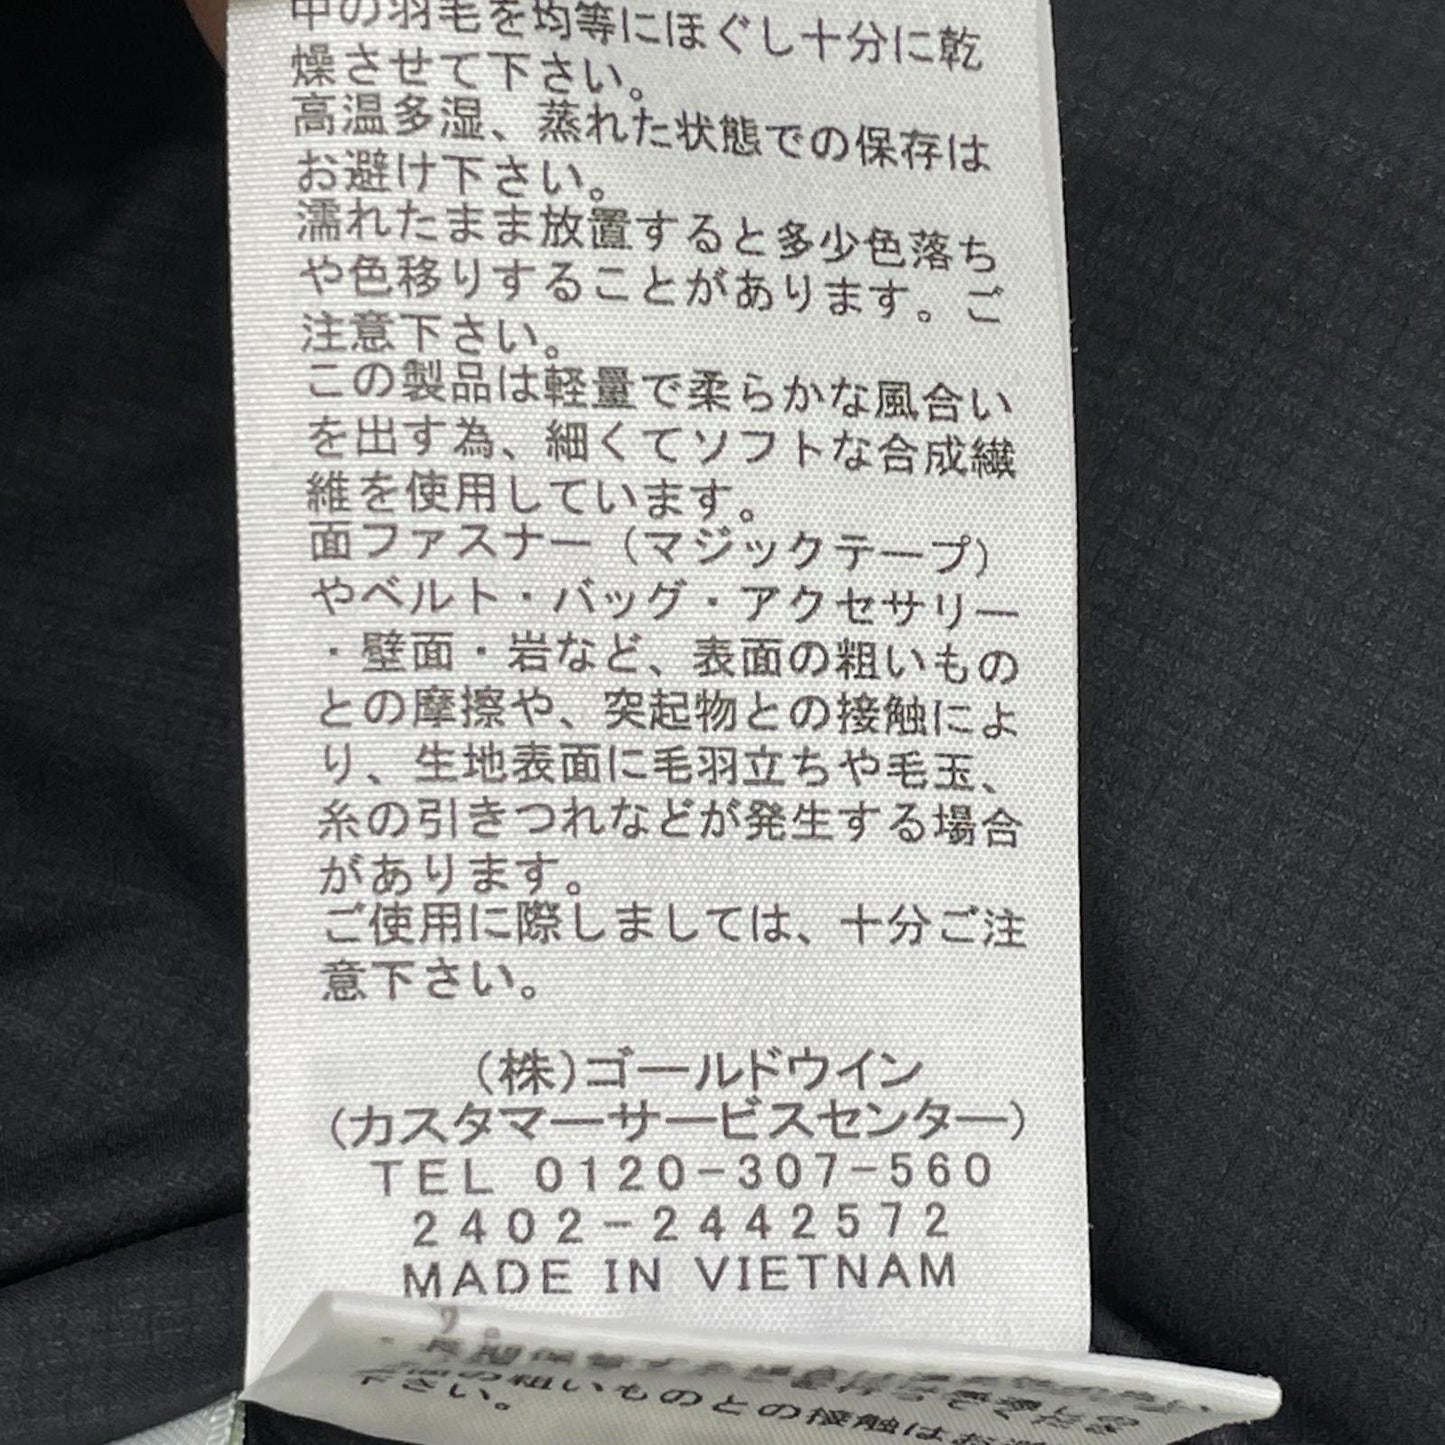 中の羽毛を均等にほぐし十分に乾
燥させて下さい。
高温多湿、蒸れた状態での保存は
お避け下さい。
濡れたまま放置すると多少色落ち
や色移りすることがあります。ご
注意下さい。
この製品は軽量で柔らかな風合い
を出す為、細くてソフトな合成繊
維を使用しています。
面ファスナー（マジックテープ）
やベルト・バッグ・アクセサリー
・壁面・岩など、表面の粗いもの
との摩擦や、突起物との接触によ
り、生地表面に毛羽立ちや毛玉、
糸の引きつれなどが発生する場合
があります。
ご使用に際しましては、十分ご注
意下さい。
(株)ゴールドウイン
(カスタマーサービスセンター)
TEL 0120-307-560
2402-2442572
MADE IN VIETNAM
の粗いものとの接触はお
下さい。